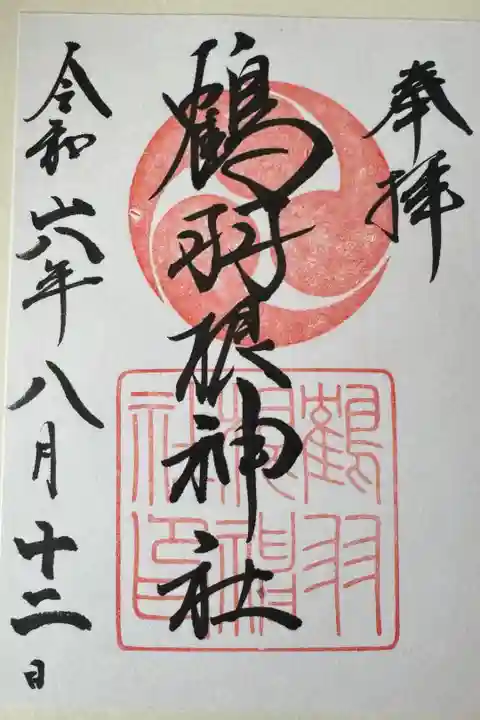 奉拝
鶴羽根神社
鶴羽
根神
社印
令和六年八月十二日